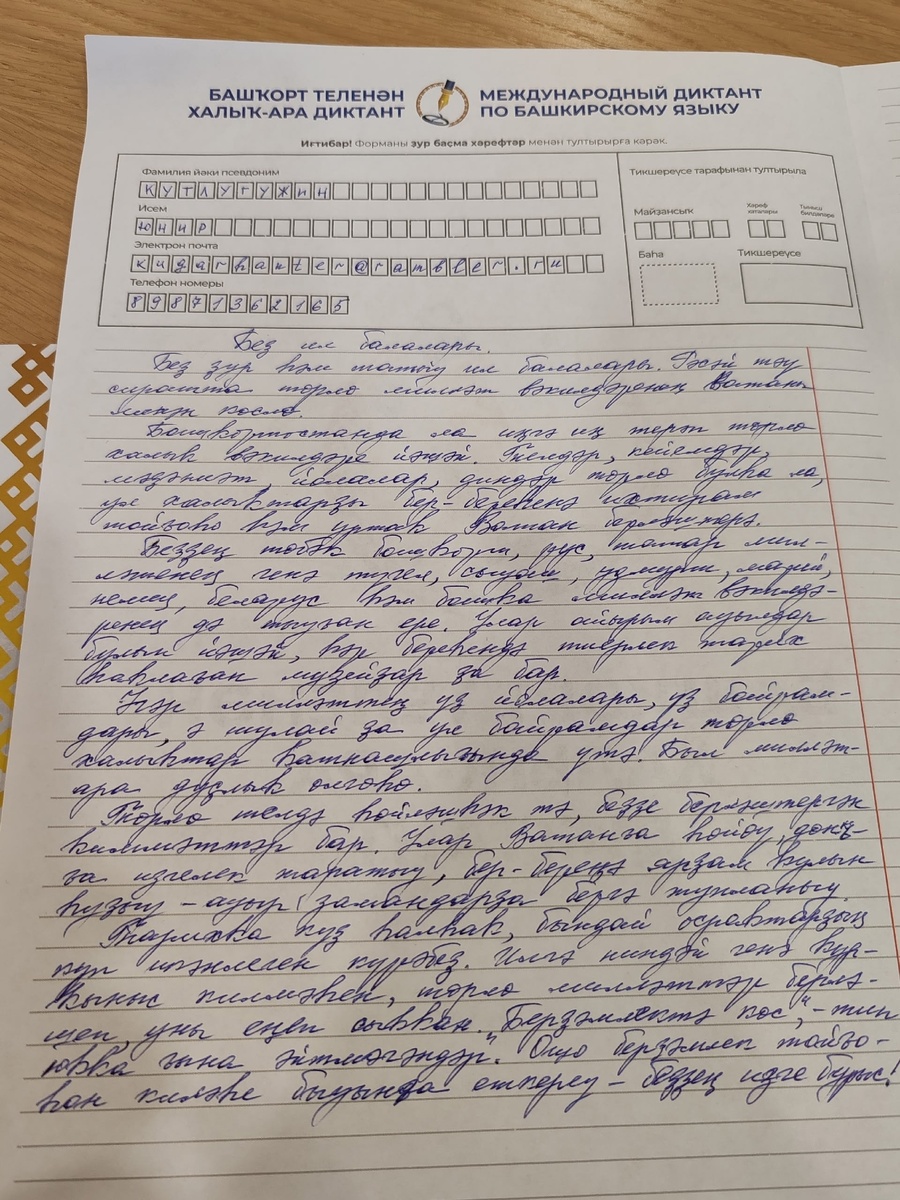 БАШҠОРТ ТЕЛЕНӘН
ХАЛЫҠ-АРА ДИКТАНТ
МЕЖДУНАРОДНЫЙ ДИКТАНТ
ПО БАШКИРСКОМУ ЯЗЫКУ
Иғтибар! Форманы зур баҫма хәрефтәр менән тултырырға кәрәк.
Фамилия йәки псевдоним
КУТЛУГУЖИН
Исем
ЮНИР
Электрон почта
kudarhanter@rambler.ru
Телефон номеры
89871362165
Тикшереүсе тарафынан тултырыла
Майҙансыҡ
Хәреф хаталары
Тыныш билдәләре
Баһа
Тикшереүсе
Беҙ ил балалары.
Беҙ ҙур һәм татыу ил балалары. Рәсәй тәү
сиратта төрлө милләт вәкилдәренең Ватаны
менән көслө.
Башҡортостанда ла иңгә иң терәп төрлө
халыҡ вәкилдәре йәшәй. Телдәр, кейемдәр,
мәҙәниәт, йолалар, диндәр төрлө булһа ла,
ул халыҡтарҙы бер-береһенә ихтирам
тойғоһо һәм уртаҡ Ватан берләштерә.
Беҙҙең төбәк башҡорт, рус, татар мил-
ләтенең генә түгел, сыуаш, удмурт, мари,
немец, беларус һәм башҡа милләт вәкилдә-
ренең дә тыуған ере. Улар айырым ауылдар
булып йәшәй, һәр береһендә тиерлек тарих
һаҡлаған музейҙар ҙа бар.
Һәр милләттең үҙ йолалары, үҙ байрам-
дары, ә шулай ҙа ул байрамдар төрлө
халыҡтар ҡатнашлығында үтә. Был милләт-
ара дуҫлыҡ өлгөһө.
Төрлө телдә һөйләшһәк тә, беҙҙе берләштергән
ҡиммәттәр бар. Улар Ватанға һөйөү, донъя-
ға изгелек таратыу, бер-береңә ярҙам ҡулын
һуҙыу – ауыр замандарҙа бергә тупланыу.
Тарихҡа күҙ һалһаҡ, бындай осраҡтарҙың
күп икәнлеген күрәбеҙ. Илгә ниндәй генә ҡур-
ҡыныс килмәһен, төрлө милләттәр берлә-
шеп уны еңеп сыҡҡан. "Берҙәмлектә көс", – тип
юҡҡа ғына әйтмәгәндәр. Ошо берҙәмлек тойғо-
һон киләһе быуынға еткереү – беҙҙең изге бурыс!